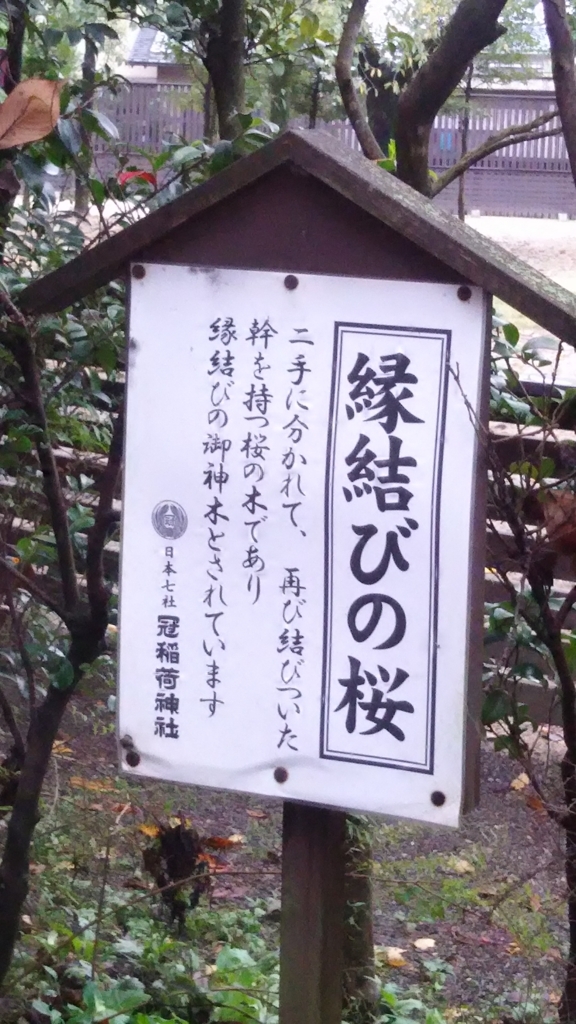 縁結びの桜
二手に分かれて、再び結びついた
幹を持つ桜の木であり
縁結びの御神木とされています
日本七社 冠稲荷神社